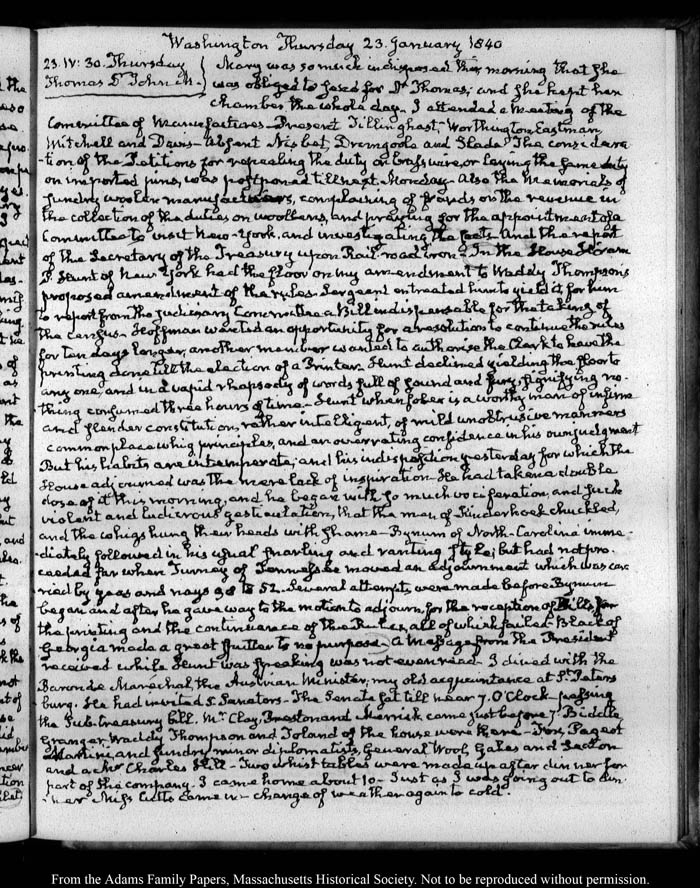 Washington Thursday 23. January 1840
23. IV: 30. Thursday
Thomas Dr John M.
Mary was so much indisposed this morning that she
was obliged to send for Dr Thomas; and she kept her
chamber the whole day. I attended a meeting of the
Committee of Manufactures. Present Tillinghast, Worthington Eastman,
Mitchell and Davis. Absent Nisbet, Dromgoole and Slade. The considera
-tion of the Petitions for repealing the duty on brass wire, or laying the same duty
on imported pins, was postponed till next Monday. Also the Memorials of
sundry woolen manufacturers, complaining of frauds on the revenue in
the collection of the duties on woollens, and praying for the appointment of a
Committee to visit New-York, and investigating the facts. And the report
of the Secretary of the Treasury upon Rail-road iron. In the House Hiram
P. Hunt of New York had the floor on my amendment to Waddy Thompson's
proposed amendment of the rules. Sergeant entreated him to yield it for him
to report from the Judiciary Committee a Bill indispensable for the taking of
the Census. Hoffman wanted an opportunity for a resolution to continue the rules
for ten days longer, another member wanted to authorise the Clerk to have the
printing done till the election of a Printer. Hunt declined yielding the floor to
any one, and in a vapid rhapsody of words full of sound and fury, signifying no-
thing consumed three hours of time. Hunt when sober is a worthy man of infirm
and slender constitution, rather intelligent, of mild unobtrusive manners
common place whig principles, and an overrating confidence in his own judgment
But his habits are intemperate, and his indisposition yesterday for which the
House adjourned was the mere lack of inspiration. He had taken a double
dose of it this morning, and he began with so much vociferation, and such
violent and ludicrous gesticulation, that the men of Kinderhook chuckled,
and the whigs hung their heads with shame. Bynum of North-Carolina imme-
diately followed in his usual snarling and ranting style; but had not pro.
ceeded far when Turney of Tennessee moved an adjournment which was car
ried by yeas and nays 98 to 52. Several attempts were made before Bynum
began and after he gave way to the motion to adjourn, for the reception of Bills, for
the printing and the continuance of the Rules, all of which failed. Black of
Georgia made a great flutter to no purpose. A Message from the President
received while Hunt was speaking was not even read. I dined with the
Baron de Maréchal, the Austrian Minister, my old acquaintance at St. Peters
burg. He had invited 5 Senators. The Senate sat till near 7. O'Clock passing
the Sub-treasury bill. Mr Clay, Preston and Merrick came just before 7. Biddle
Granger, Waddy Thompson and Toland of the house were there. Fox, Pageot
Martini, and sundry minor diplomatists, General Wool, Gales and Seaton
and a Mr Charles Hill. Two whist tables were made up after dinner for
part of the company. I came home about 10. Just as I was going out to din
-ner Miss Cutts came in. change of weather again to cold.
From the Adams Family Papers, Massachusetts Historical Society. Not to be reproduced without permission.